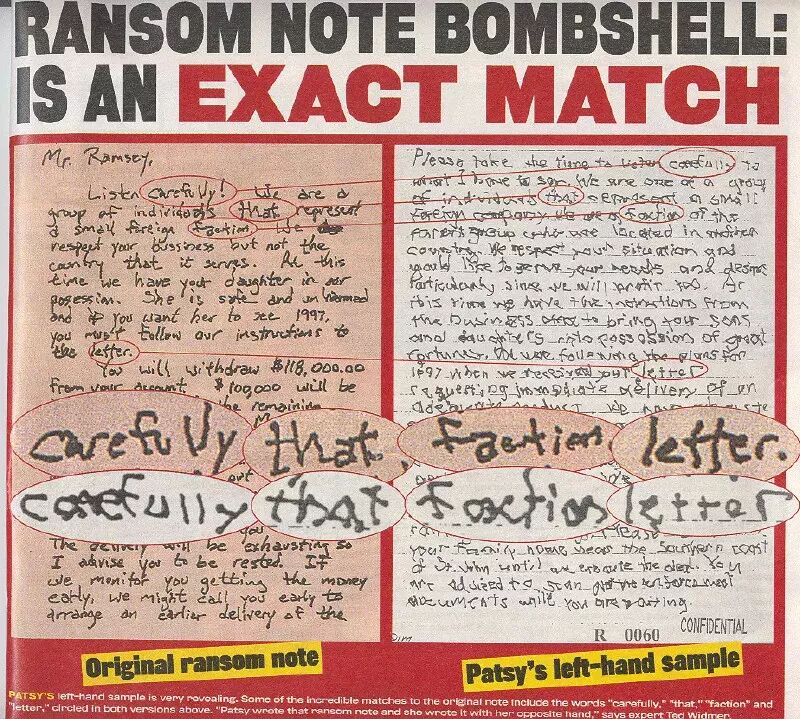 RANSOM NOTE BOMBSHELL:
IS AN EXACT MATCH
Mr. Ramsey,
Listen carefully! We are a
group of individuals that represent
a small foreign faction. We do
respect your bussiness but not the
country that it serves. At this
time we have your daughter in our
posession. She is safe and unharmed
and if you want her to see 1997,
you must follow our instructions to
the letter.
You will withdraw $118,000.00
from your account. $100,000 will be
the remaining
carefully that faction letter.
carefully that faction letter
you
The delivery will be exhausting so
I advise you to be rested. If
we monitor you getting the money
early, we might call you early to
arrange an earlier delivery of the
Please take the time to listen carefully to
what I have to say. We are one of a group
of individuals that represent a small
foreign company. We are a faction of the
group who are located in another
country. We respect your situation and
would like to serve your needs and desires
particularly since we will profit too. At
this time we have the instructions from
the business to bring your sons
and daughters into possession of great
fortunes. following the plans for
1997 when we received your letter
requesting immediate delivery of an
product. We have
your family home near the Southern coast
of St. John until we execute the deal. You
are advised to scan
documents while you are waiting.
CONFIDENTIAL
R 0060
Original ransom note
Patsy's left-hand sample
PATSY'S left-hand sample is very revealing. Some of the incredible matches to the original note include the words "carefully," "that," "faction" and
"letter," circled in both versions above. "Patsy wrote that ransom note and she wrote it with her opposite hand," says expert Ted Widmer.